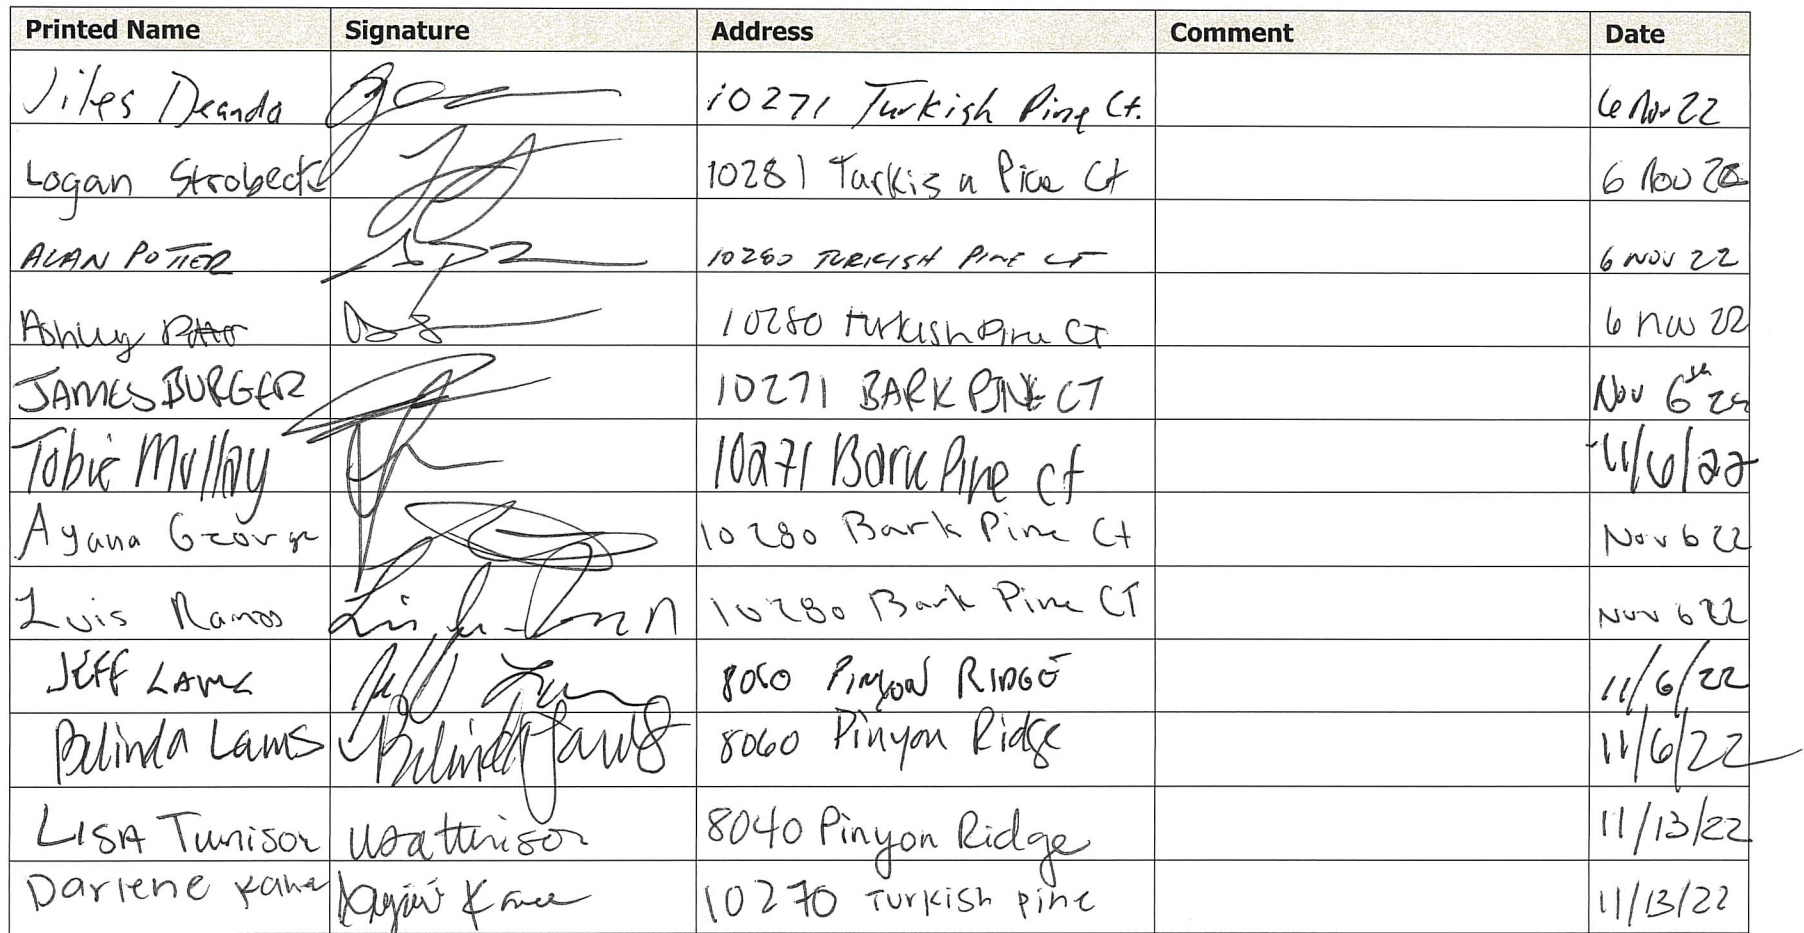 Printed Name Signature Address Comment Date
Jiles Deanda 10271 Turkish Pine Ct. 6 Nov 22
Logan Strobeck 10281 Turkish Pine Ct 6 Nov 22
ALAN POTTER 10280 TURKISH PINE CT 6 NOV 22
Ashley 10280 Turkish Pine CT 6 nov 22
JAMES BURGER 10271 BARK PINE CT Nov 6th 22
Tobie Mulloy 10271 Bark Pine ct 11/6/22
Ayana George 10280 Bark Pine Ct Nov 6 22
Luis Ramos 10280 Bark Pine CT Nov 6 22
JEFF LAMS Jeff 8060 PINYON RIDGE 11/6/22
Belinda Lams Belinda Lams 8060 Pinyon Ridge 11/6/22
LISA Tunison Lisa Tunison 8040 Pinyon Ridge 11/13/22
Darlene Kane Kane 10270 Turkish pine 11/13/22